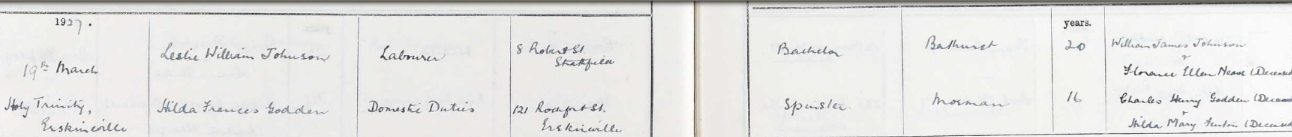 1927.
years.
19th March
Leslie William Johnson
Labourer
8 Robert St.
Strathfield
Bachelor
Bathurst
20
William James Johnson
+
Florence Ellen
Holy Trinity,
Erskineville
Hilda Frances Godden
Domestic Duties
121 Rochfort St.
Erskineville
Spinster
Mosman
16
Charles Henry Godden
+
Hilda Mary